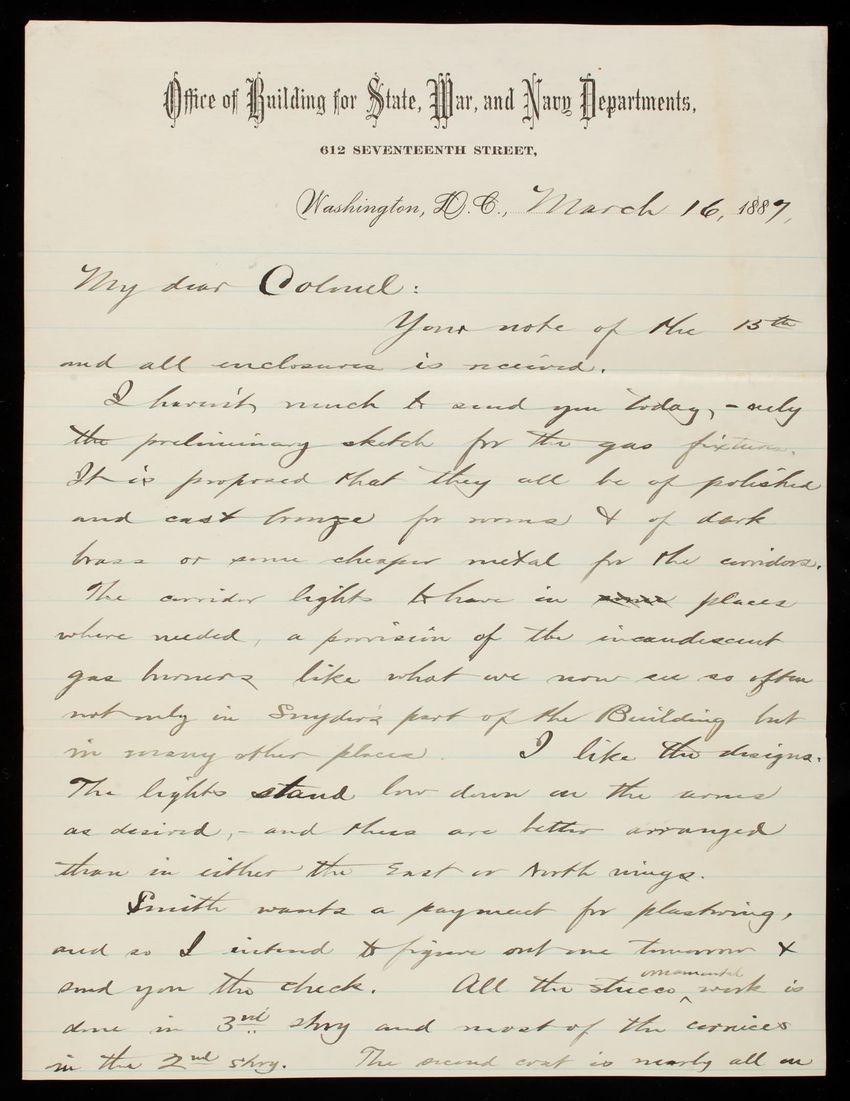 Office of Building for State, War, and Navy Departments,
612 SEVENTEENTH STREET,
Washington, D.C., March 16, 1887,
My dear Colonel:
Your note of the 15th
and all enclosures is received.
I haven't much to send you today, - only
the preliminary sketch for the gas fixtures.
It is proposed that they all be of polished
and cast bronze for rooms & of dark
brass or some cheaper metal for the corridors.
The corridor lights to have in some places
where needed, a provision of the incandescent
gas burners like what we now see so often
not only in Snyder's part of the Building but
in many other places. I like the designs.
The lights stand low down on the arms
as desired, - and these are better arranged
than in either the East or North wings.
Smith wants a payment for plastering,
and so I intend to figure out one tomorrow &
send you the check. All the stucco ^ornamental work is
done in 3rd story and most of the cornices
in the 2nd story. The second coat is nearly all on